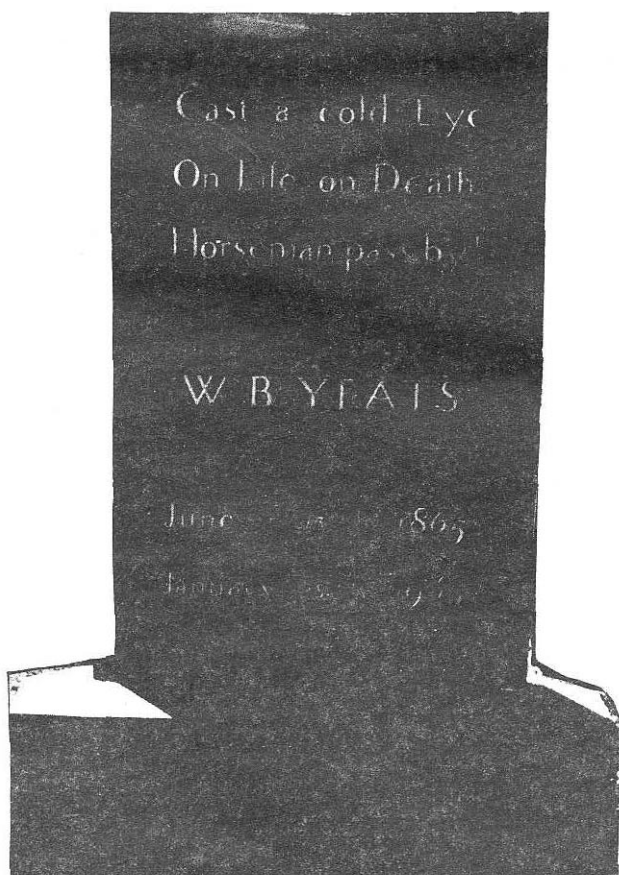 Cast a cold Eye
On Life on Death
Horseman pass by!
W B YEATS
June 1865
January